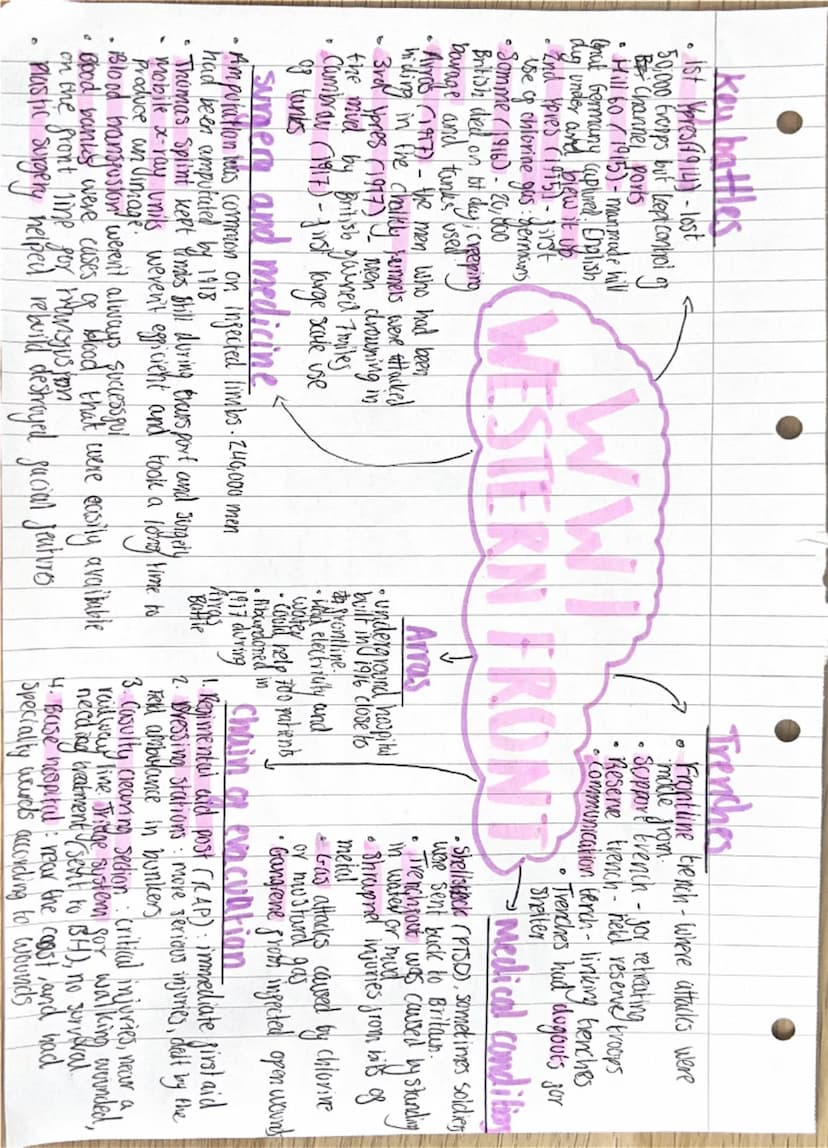 WW1
WESTERN FRONT
Key battles
• 1st Ypres (1914) - lost
50,000 troops but kept control of
channel ports
• Hill 60 (1915) - man made hill
that Germany captured. English
dug under and blew it up.
• 2nd Ypres (1915) - first
use of chlorine gas: germans
• Somme (1916) - 20,000
British died on 1st day; creeping
barrage and tanks used
• Arras (1917) - the men who had been
hiding in the chalky tunnels were attacked
• 3rd Ypres (1917) - men drowning in
the mud by British gained 7miles
• Cambrai (1917) - first large scale use
of tanks
Trenches
• Frontline trench - where attacks were
made from.
• Support trench - for retreating
• Reserve trench - held reserve troops
• Communication trench - linking trenches
• Trenches had dugouts for
shelter
surgery and medicine
• Amputation was common on injected limbs. 240,000 men
had been amputated by 1918
• Thomas splint kept limbs still during transport and surgery
• mobile x-ray units weren't efficient and took a long time to
produce an image.
• Blood transfusion weren't always successful
• Blood banks were cases of blood that were easily available
on the front line for transfusion
• Plastic surgery helped rebuild destroyed facial features
Arras
• underground hospital
built in 1916 close to
frontline.
• Had electricity and
water
• could help 700 patients
• Abandoned in
1917 during
Arras
Battle
medical condition
• shellshock (PTSD), sometimes soldier
were sent back to Britain.
• Trenchfoot was caused by standing
in water or mud
• Shrapnel injuries from bits of
metal
• Gas attacks caused by chlorine
or mustard gas
• Gangrene from injected open wound
Chain of evacuation
1. Regimental aid post (RAP): immediate first aid
2. Dressing stations: more serious injuries, dealt by the
field ambulance in bunkers
3. Casulty clearing section: critical injuries near a
railway line. Triage system for walking wounded,
needing treatment (sent to BH), no survival
4. Base hospital: near the coast, and had
specialty wards according to wounds